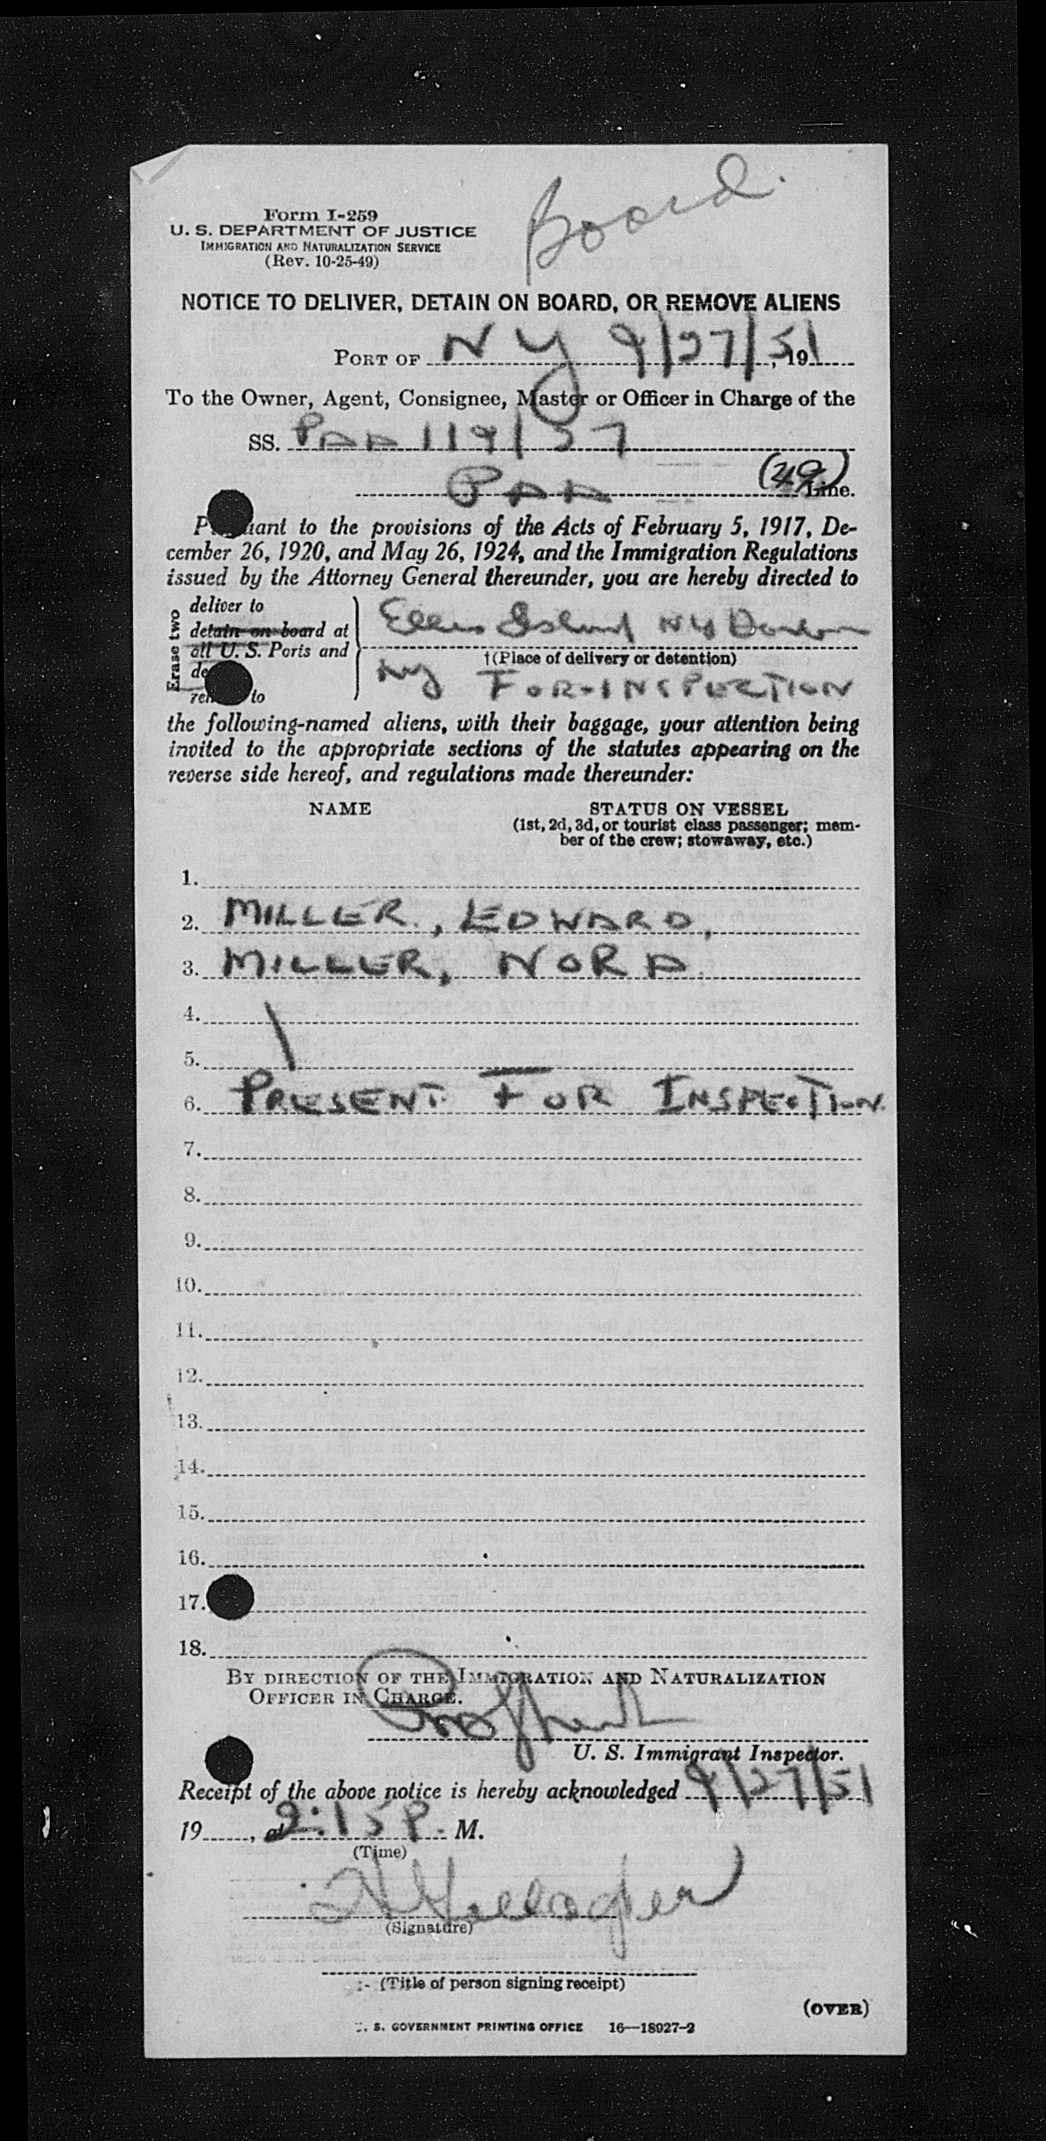 Board.
Form I-259
U. S. DEPARTMENT OF JUSTICE
IMMIGRATION AND NATURALIZATION SERVICE
(Rev. 10-25-49)
NOTICE TO DELIVER, DETAIN ON BOARD, OR REMOVE ALIENS
PORT OF N Y 9/27/51, 19
To the Owner, Agent, Consignee, Master or Officer in Charge of the
SS. PAA 119/27
(49)
PAA Line.
Pursuant to the provisions of the Acts of February 5, 1917, De-
cember 26, 1920, and May 26, 1924, and the Immigration Regulations
issued by the Attorney General thereunder, you are hereby directed to
Erase two
deliver to
detain on board at
all U. S. Ports and
to
Ellis Island NY Harbor
†(Place of delivery or detention)
NY FOR-INSPECTION
the following-named aliens, with their baggage, your attention being
invited to the appropriate sections of the statutes appearing on the
reverse side hereof, and regulations made thereunder:
NAME STATUS ON VESSEL
(1st, 2d, 3d, or tourist class passenger; mem-
ber of the crew; stowaway, etc.)
1.
2. MILLER., EDWARD,
3. MILLER, NORA.
4.
5.
6. PRESENT FOR INSPECTION.
7.
8.
9.
10.
11.
12.
13.
14.
15.
16.
17.
18.
BY DIRECTION OF THE IMMIGRATION AND NATURALIZATION
OFFICER IN CHARGE.
U. S. Immigrant Inspector.
Receipt of the above notice is hereby acknowledged 9/27/51
19, at 2:15 P. M.
(Time)
Gallagher
(Signature)
(Title of person signing receipt)
(OVER)
U. S. GOVERNMENT PRINTING OFFICE 16—18927-2